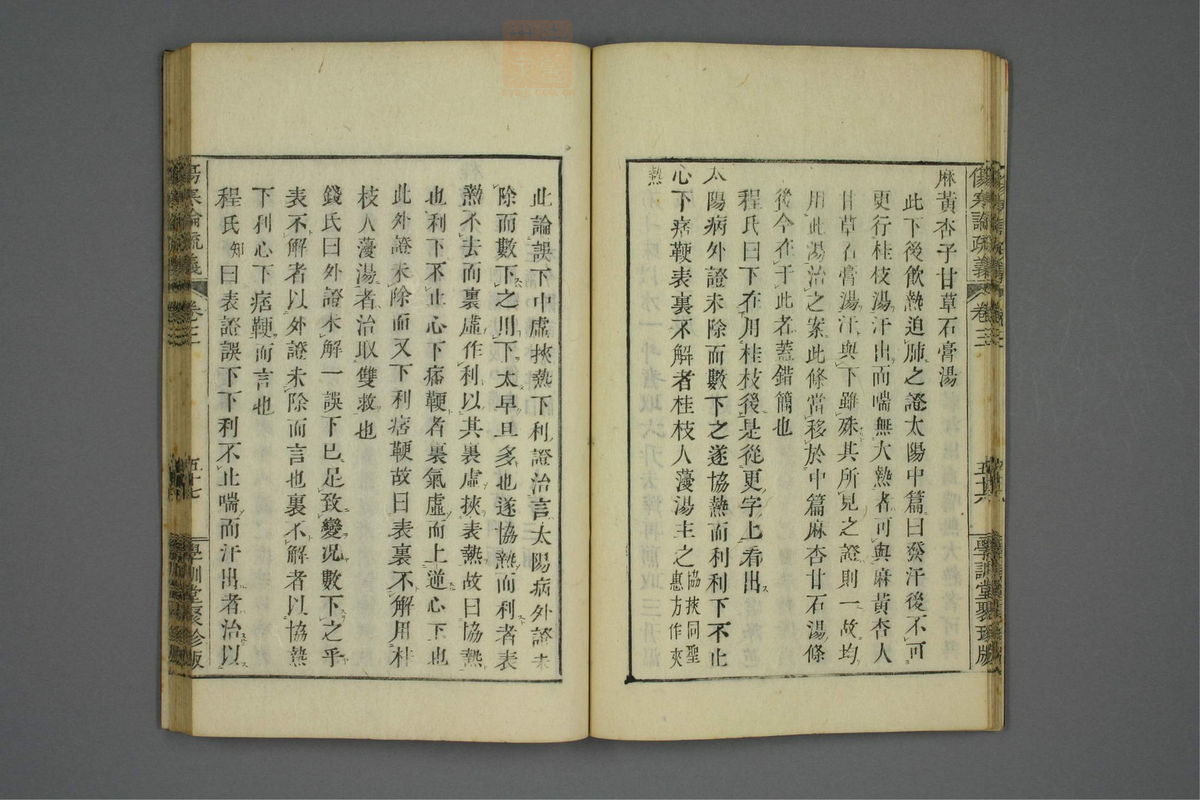 傷寒論疏義 卷三 五十六 學訓堂聚珍版
麻黃杏子甘草石膏湯
此下後飲熱迫肺之證太陽中篇曰發汗後不可
更行桂枝湯汗出而喘無大熱者可與麻黃杏人
甘草石膏湯汗與下雖殊其所見之證則一故均
用此湯治之案此條當移於中篇麻杏甘石湯條
後今在于此者蓋錯簡也
程氏曰下在用桂枝後是從更字上看出
太陽病外證未除而數下之遂協熱而利利下不止
心下痞鞕表裏不解者桂枝人薓湯主之協挾同聖惠方作夾
熱
此論誤下中虛挾熱下利證治言太陽病外證未
除而數下之用下太早且多也遂協熱而利者表
熱不去而裏虛作利以其裏虛挾表熱故曰協熱
也利下不止心下痞鞕者裏氣虛而上逆心下也
此外證未除而又下利痞鞕故曰表裏不解用桂
枝人薓湯者治取雙救也
錢氏曰外證未解一誤下已足致變況數下之乎
表不解者以外證未除而言也裏不解者以協熱
下利心下痞鞕而言也
程氏知曰表證誤下下利不止喘而汗出者治以
傷寒論疏義 卷三 五十七 學訓堂聚珍版